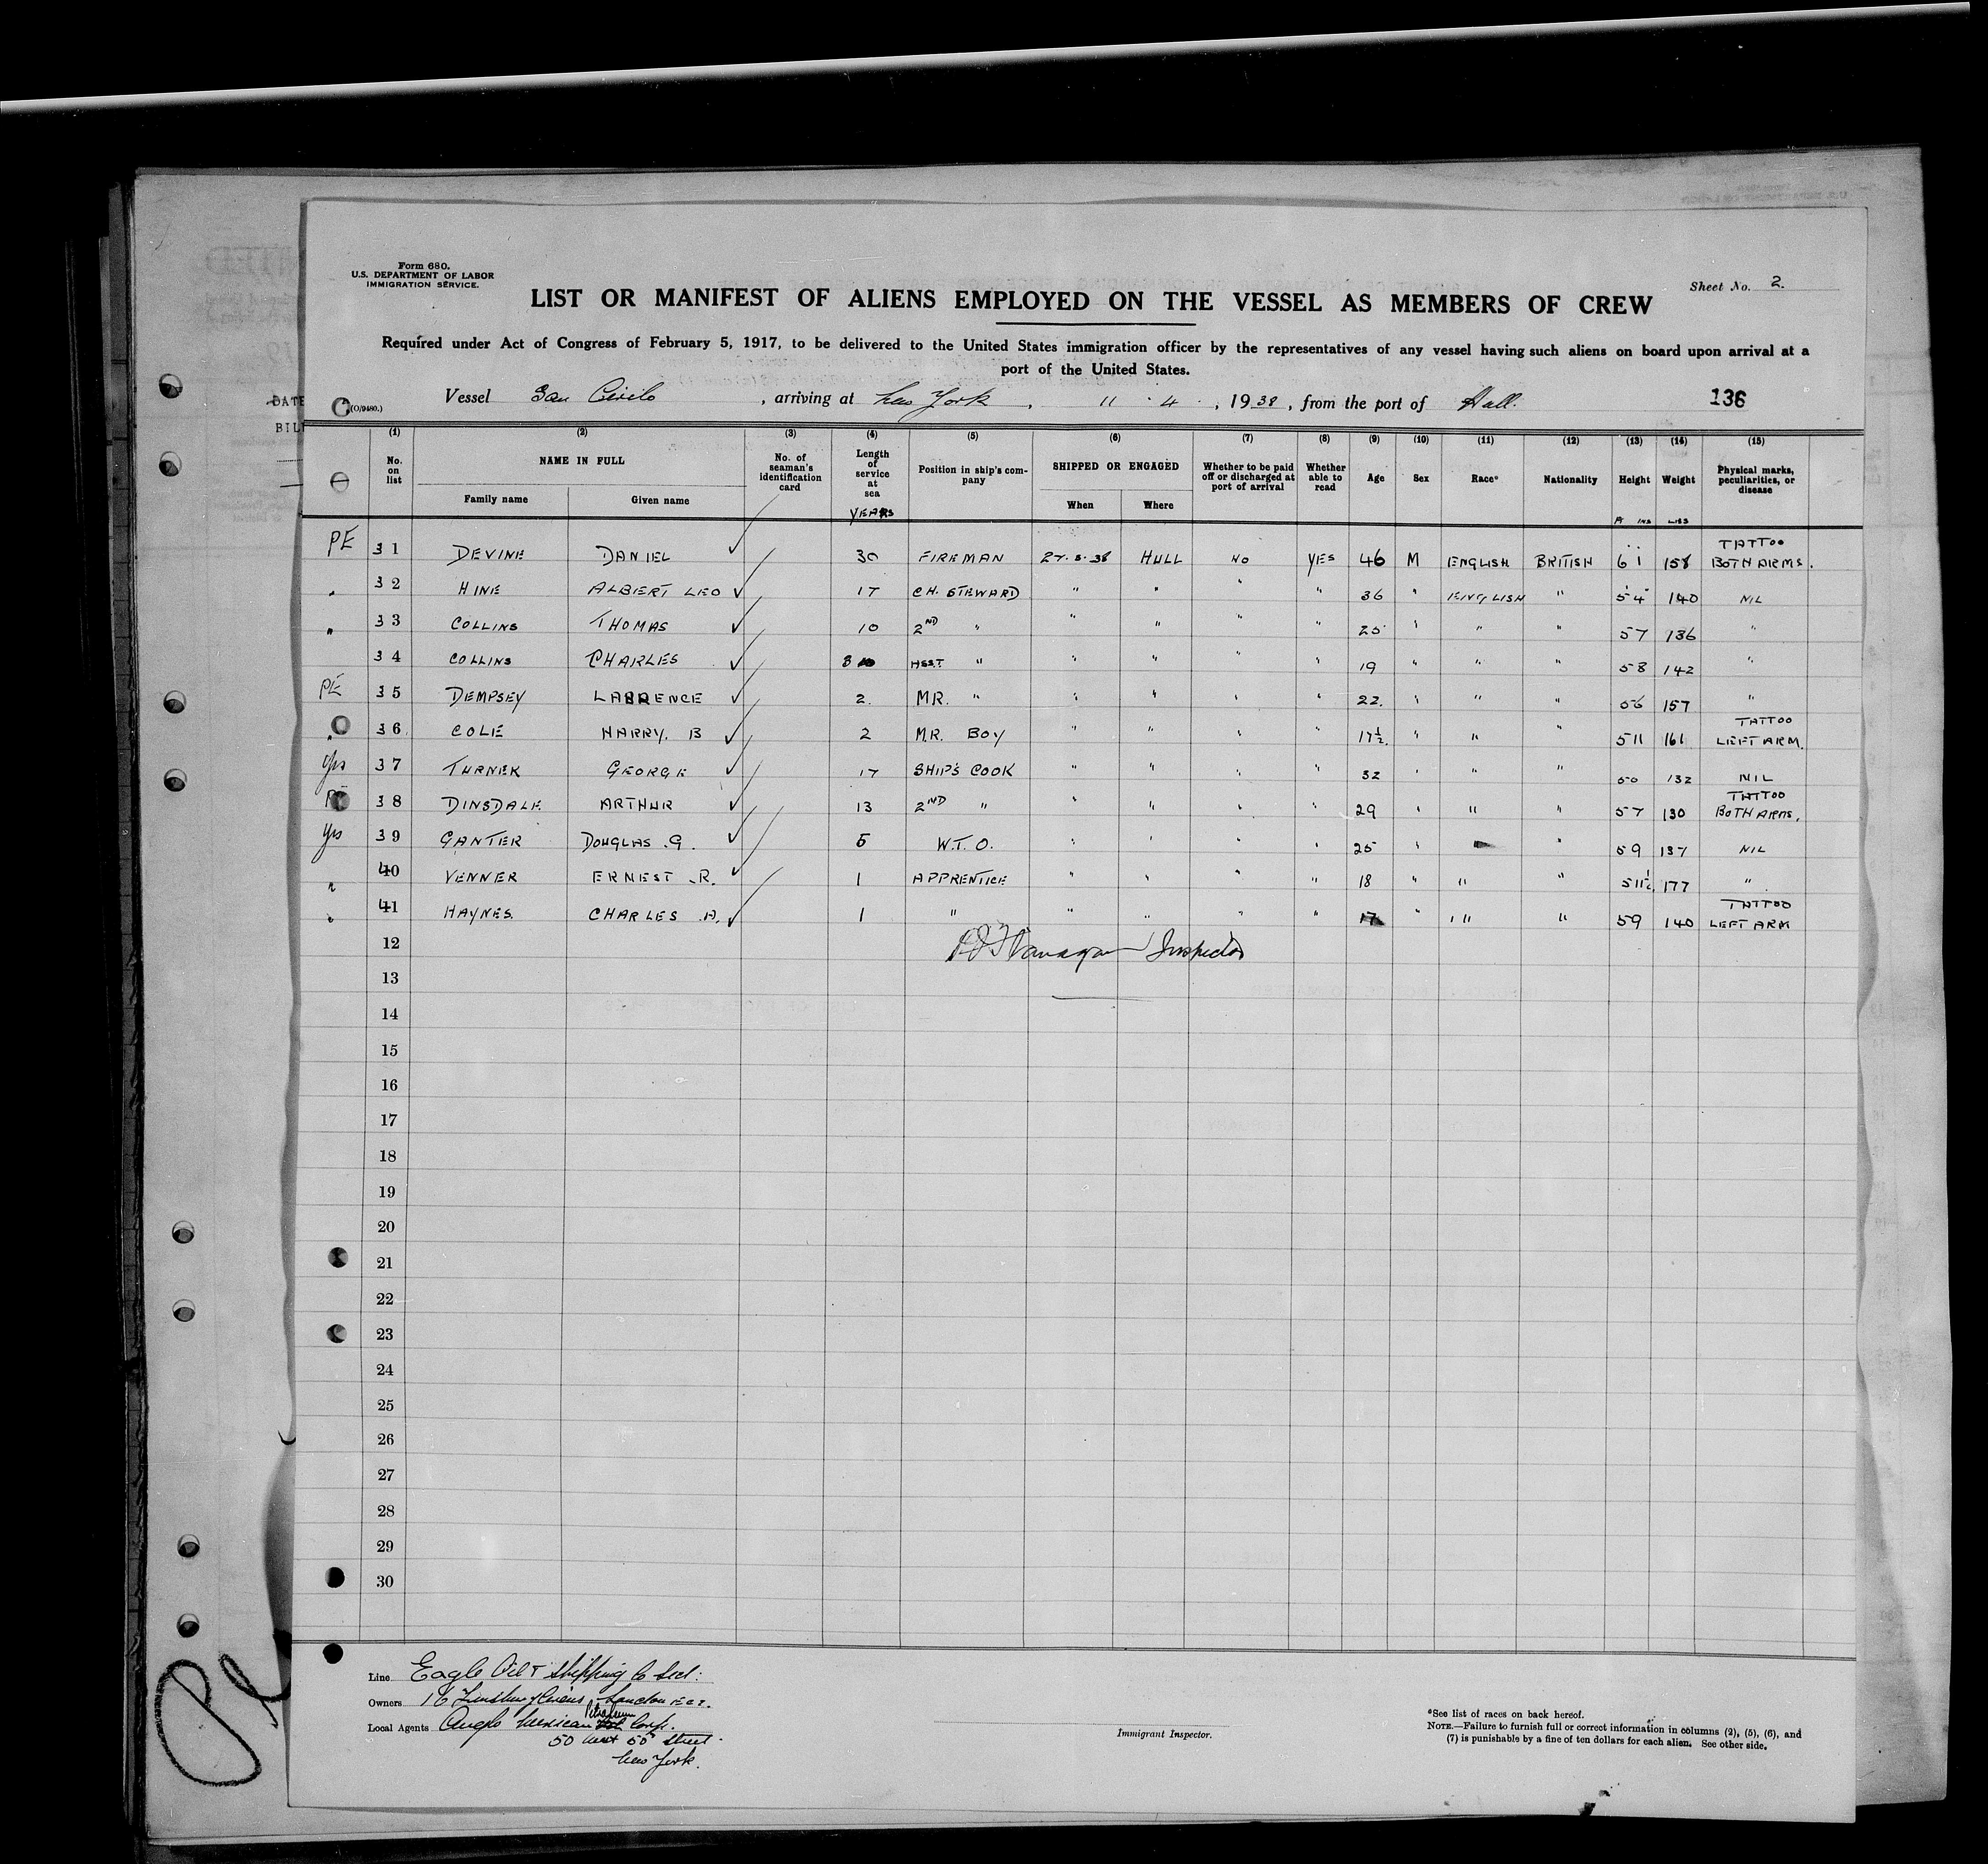 Form 680.
U.S. DEPARTMENT OF LABOR
IMMIGRATION SERVICE.
Sheet No. 2.
LIST OR MANIFEST OF ALIENS EMPLOYED ON THE VESSEL AS MEMBERS OF CREW
Required under Act of Congress of February 5, 1917, to be delivered to the United States immigration officer by the representatives of any vessel having such aliens on board upon arrival at a
port of the United States.
DATE
BIL
(O/9480.) Vessel San Cirilo, arriving at New York, 11 . 4 ., 1938, from the port of Hull. 136
(1) (2) (3) (4) (5) (6) (7) (8) (9) (10) (11) (12) (13) (14) (15)
No. on list NAME IN FULL Family name Given name No. of seaman's identification card Length of service at sea YEARS Position in ship's company SHIPPED OR ENGAGED When Where Whether to be paid off or discharged at port of arrival Whether able to read Age Sex Race* Nationality Height Ft INS Weight LBS Physical marks, peculiarities, or disease
PE 31 DEVINE DANIEL ✓ 30 FIREMAN HULL NO YES 46 M ENGLISH BRITISH 6 1 158 TATTOO BOTH ARMS.
" 32 HINE ALBERT LEO ✓ 17 CH. STEWARD " " " " 36 " ENGLISH " 5 4 140 NIL
" 33 COLLINS THOMAS ✓ 10 2ND " " " " " 25 " " " 5 7 136 "
34 COLLINS CHARLES ✓ 3 ASST. " " " " " 19 " " " 5 8 142 "
PE 35 DEMPSEY LAURENCE ✓ 2. MR. " " " " " 22. " " " 5 6 157 "
" 36 COLE HARRY. B ✓ 2 M.R. BOY " " " " 17½. " " " 5 11 161 TATTOO LEFT ARM.
Yes 37 TURNER GEORGE ✓ 17 SHIP'S COOK " " " " 32 " " " 132 NIL
PE 38 DINSDALE ARTHUR ✓ 13 2ND " " " " " 29 " " " 5 7 130 TATTOO BOTH ARMS.
Yes 39 GANTER DOUGLAS .G. ✓ 5 W.T.O. " " " " 25 " " 5 9 137 NIL
" 40 VENNER ERNEST .R. ✓ 1 APPRENTICE " " " " 18 " " " 5 11½ 177 "
" 41 HAYNES. CHARLES .A. ✓ 1 " " " " " 17 " " " 5 9 140 TATTOO LEFT ARM
12 Flanagan Inspector
13
14
15
16
17
18
19
20
21
22
23
24
25
26
27
28
29
30
Line Eagle Oil & Shipping Co Ltd:
Owners 16 Finsbury Circus, London E.C.2.
Local Agents Anglo Mexican Petroleum Corp.
50 West 50th Street.
New York.
Immigrant Inspector.
*See list of races on back hereof.
NOTE.—Failure to furnish full or correct information in columns (2), (5), (6), and
(7) is punishable by a fine of ten dollars for each alien. See other side.